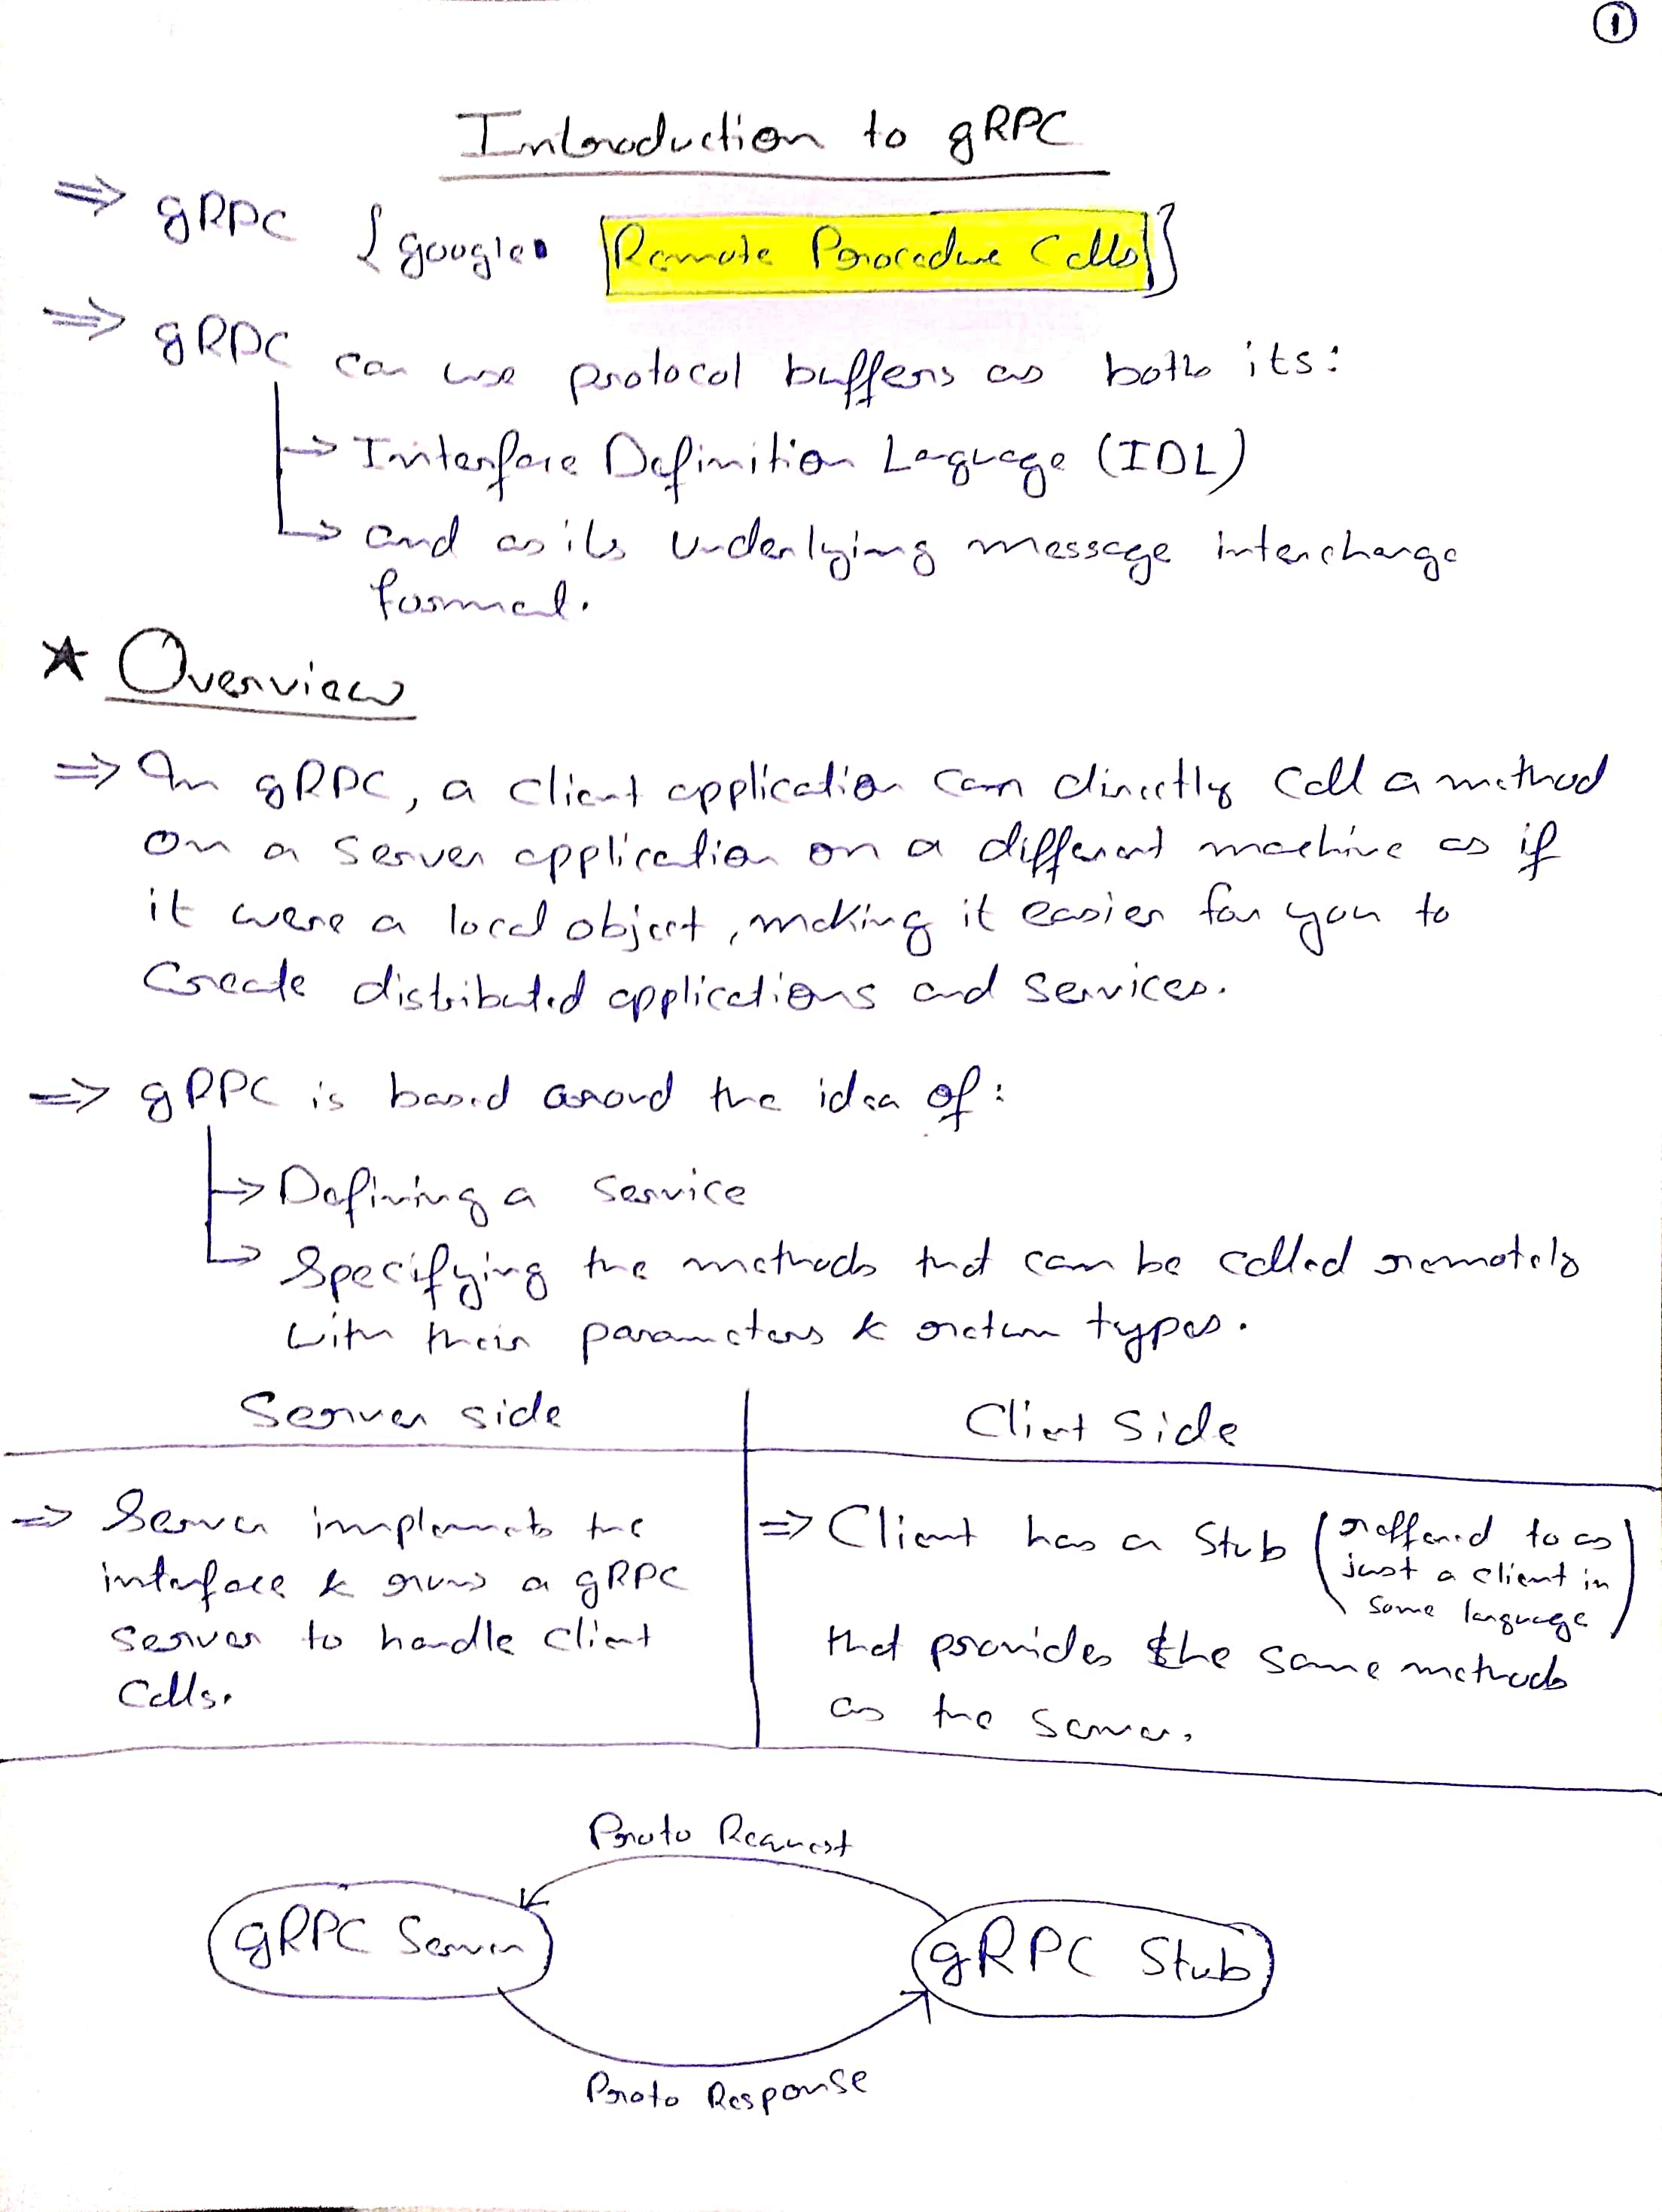 1
Introduction to gRPC
⇒ gRPC {google [Remote Procedure Calls]}
⇒ gRPC can use protocol buffers as both its:
→ Interface Definition Language (IDL)
→ and as its underlying message interchange
format.
★ Overview
⇒ In gRPC, a client application can directly call a method
on a server application on a different machine as if
it were a local object, making it easier for you to
Create distributed applications and services.
⇒ gRPC is based around the idea of:
→ Defining a service
→ Specifying the methods that can be called remotely
with their parameters & return types.
Server side
⇒ Server implements the
interface & runs a gRPC
server to handle client
Calls.
Client Side
⇒ Client has a Stub (reffered to as
just a client in
some language)
that provides the same methods
as the server.
Proto Request
gRPC Server
gRPC Stub
Proto Response